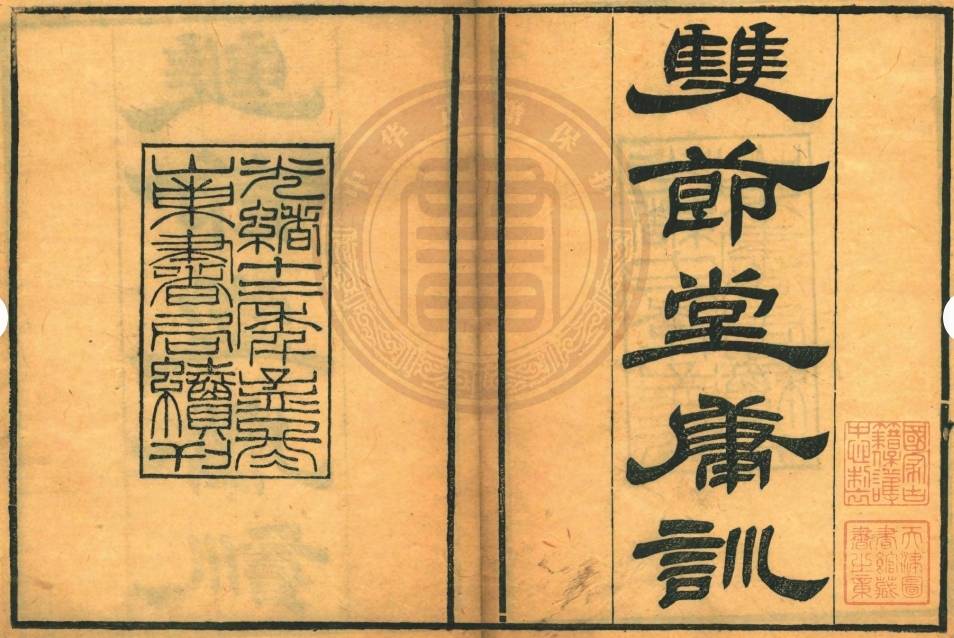 雙節堂庸訓
光緒十二年孟冬
山東書局續刊
中华古籍保护
國家古
籍保護
天津圖
書館藏
書之章